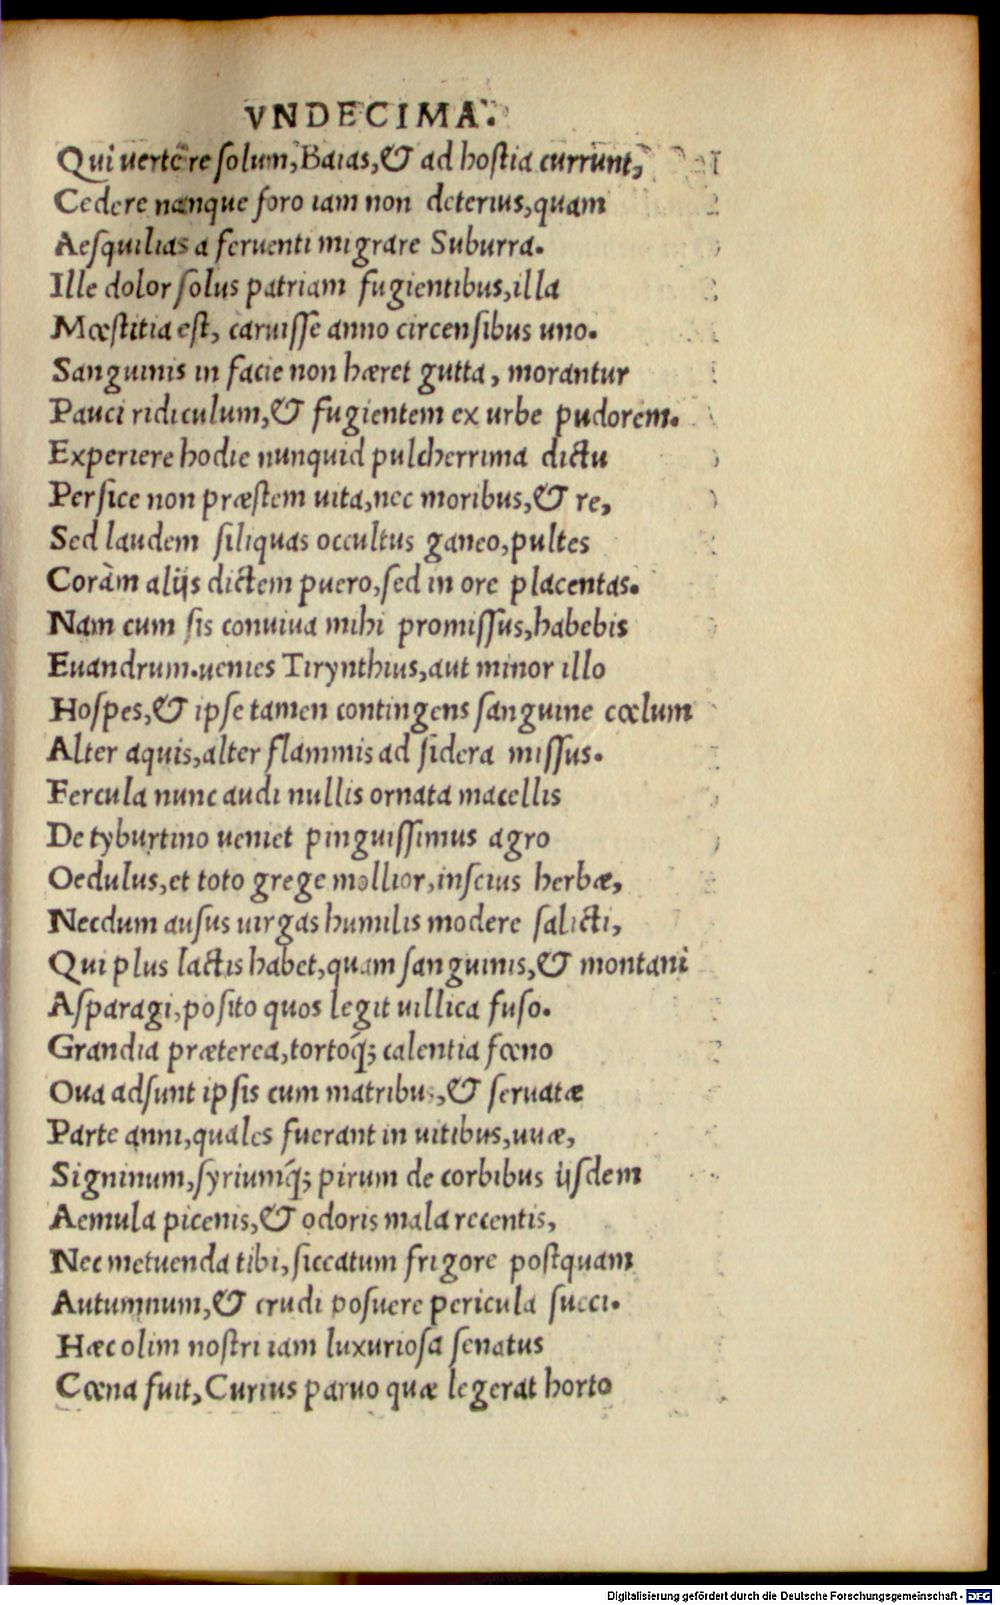 VNDECIMA.
Qui uertere solum, Baias, & ad hostia currunt,
Cedere nanque foro iam non deterius, quam
Aesquilias a feruenti migrare Suburra.
Ille dolor solus patriam fugientibus, illa
Mœstitia est, caruisse anno circensibus uno.
Sanguinis in facie non hæret gutta, morantur
Pauci ridiculum, & fugientem ex urbe pudorem.
Experiere hodie nunquid pulcherrima dictu
Persice non præstem uita, nec moribus, & re,
Sed laudem siliquas occultus ganeo, pultes
Coràm alijs dictem puero, sed in ore placentas.
Nam cum sis conuiua mihi promissus, habebis
Euandrum. uenies Tirynthius, aut minor illo
Hospes, & ipse tamen contingens sanguine cœlum
Alter aquis, alter flammis ad sidera missus.
Fercula nunc audi nullis ornata macellis
De tyburtino ueniet pinguissimus agro
Oedulus, et toto grege mollior, inscius herbæ,
Necdum ausus uirgas humilis modere salicti,
Qui plus lactis habet, quam sanguinis, & montani
Asparagi, posito quos legit uillica fuso.
Grandia præterea, tortoq́; calentia fœno
Oua adsunt ipsis cum matribus, & seruatæ
Parte anni, quales fuerant in uitibus, uuæ,
Signinum, syriumq́; pirum de corbibus ijsdem
Aemula picenis, & odoris mala recentis,
Nec metuenda tibi, siccatum frigore postquam
Autumnum, & crudi posuere pericula succi.
Hæc olim nostri iam luxuriosa senatus
Cœna fuit, Curius paruo quæ legerat horto
Digitalisierung gefördert durch die Deutsche Forschungsgemeinschaft - DFG